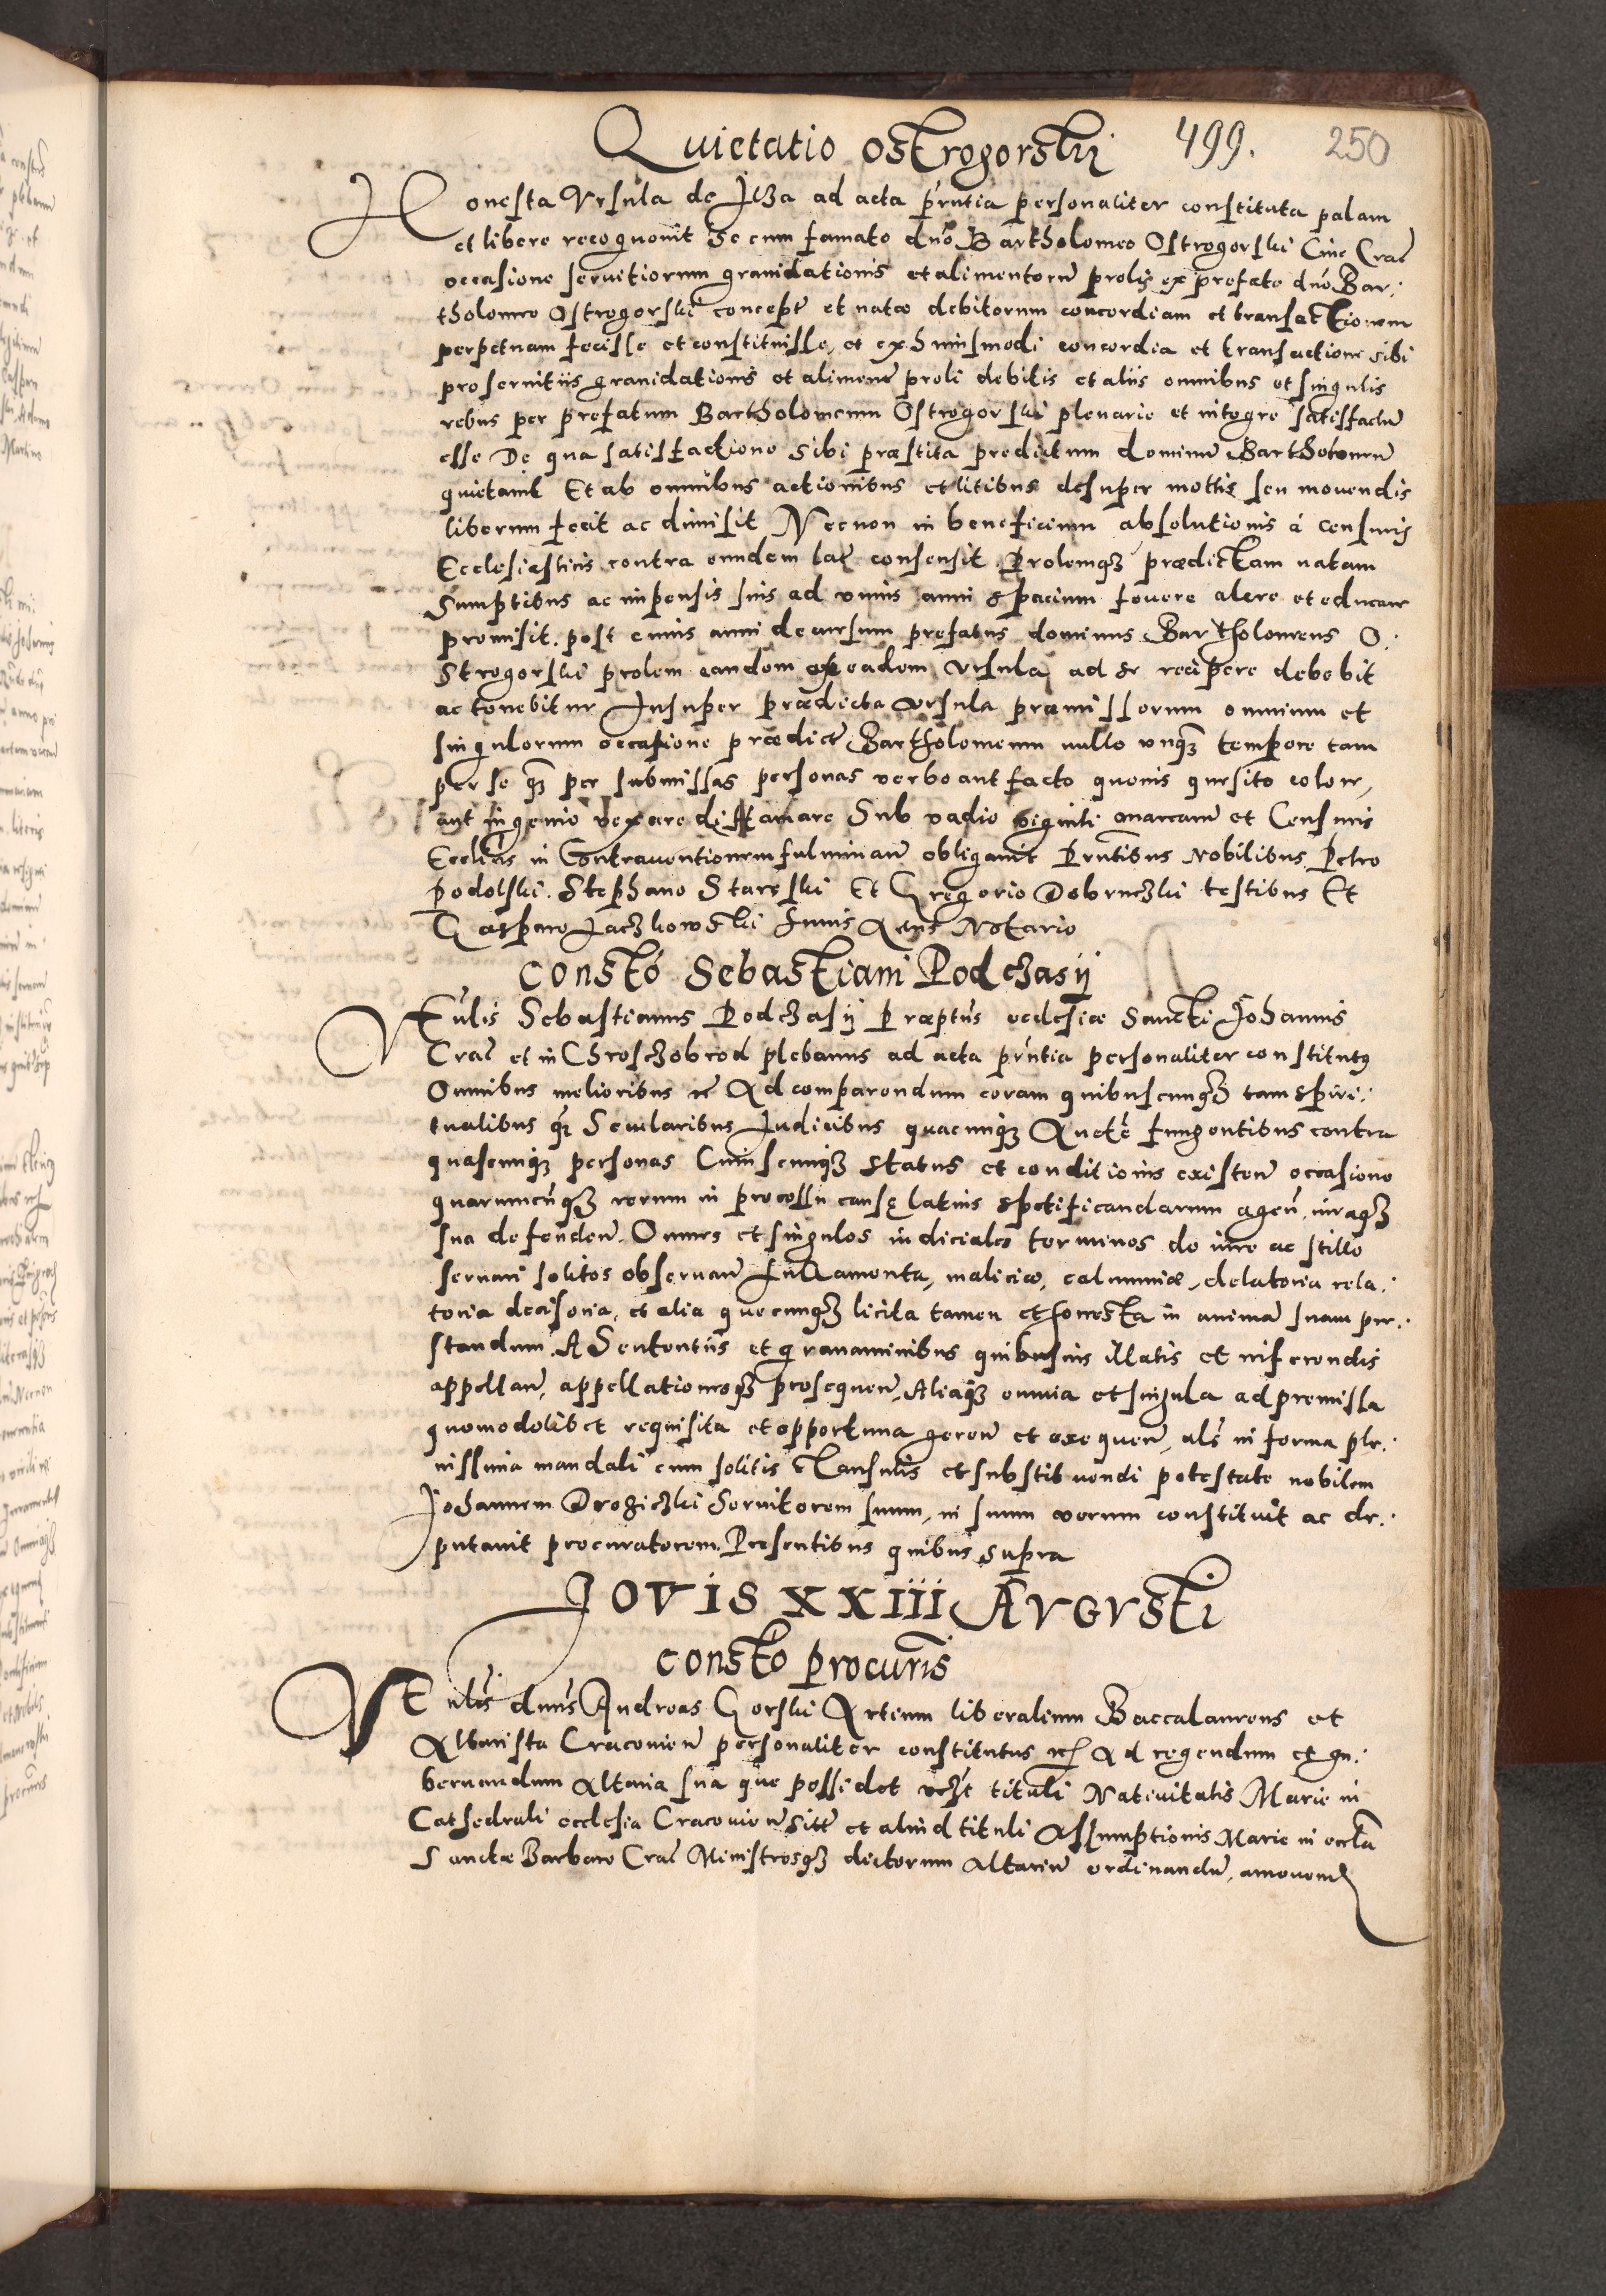 Quietatio Ostrogorskij 499. 250
Honesta Vrsula de Ilza ad acta prntia personaliter constituta palam
et libere recognouit Se cum famato dno Bartholomeo Ostrogorski Ciue Crac
occasione seruitiorum grauidationis et alimentorum prolis ex prefato dno Bar:
tholomeo Ostrogorski concepte et natae debitorum concordiam et transactionem
perpetuam fecisse et constituisse, et ex huiusmodi concordia et transactione sibi
pro seruitiis grauidationis et alimen proli debitis et aliis omnibus et singulis
rebus per prefatum Bartholomeum Ostrogorski plenarie et integre satisfactu
esse De qua satisfactione Sibi praestita predictum dominum Bartholomeu
quietauit Et ab omnibus actionibus et litibus desuper mottis seu mouendis
liberum fecit ac dimisit Necnon in beneficium absolutionis a censuris
Ecclesiasticis contra eundem lat consensit. Prolemqz praedictam natam
Sumptibus ac impensis suis ad vnius anni spacium fouere alere et educare
promisit. post cuius anni decursum prefatus dominus Bartholomeus O:
Strogorski prolem eandem ex eadem vrsula ad se recipere debebit
ac tenebitur Insuper praedicta vrsula praemissorum omnium et
singulorum occasione praedict Bartholomeum nullo vnqz tempore tam
per se qz per submissas personas verbo aut facto quouis quesito colore,
aut ingenio vexare diffamare Sub vadio viginti marcaru et Censuris
Ecclicis in Contrauentionem fulminan obligauit Prntibus Nobilibus Petro
Podolski. Stephano Starski Et Gregorio Dobruczki testibus Et
Gasparo Jaczkowski huius Actus Notario
Consto Sebastiani Podchasij
VEnlis Sebastianus Podchasij Praeptus ecclesiae Sancti Johannis
Crac et in Chroschobrod plebanus ad acta prntia personaliter constitutus
Omnibus melioribus etc Ad comparendum coram quibuscunqz tam spiri:
tualibus qz Secularibus Judicibus quacunqz Aucte fungentibus contra
quascunqz personas Cuiuscunqz status et conditionis existen occasione
quarumcunqz rerum in processu cause latius spetificandarum agen, iuraqz
sua defenden. Omnes et singulos iudiciales terminos de iure ac stillo
seruari solitos obseruan Iuramenta, maliciae, calumniae, delatoria rela:
toria decisoria, et alia quecunqz licita tamen et honesta in anima suam pre:
standum. A Sententiis et grauaminibus quibusuis illatis et inferendis
appellan, appellationesqz prosequen, Aliaqz omnia et singula ad premissa
quomodolibet requisita et opportuna geren et exequen, als in forma ple:
nissima mandati cum solitis Clausulis et substituendi potestate nobilem
Johannem Droziczki Seruitorem suum, in suum verum constituit ac de:
putauit procuratorem. Presentibus quibus supra
JOVIS XXIII AVGVSTI
Consto procuris
VEnlis dnus Andreas Gorski Artium liberalium Baccalaureus et
Altarista Cracouien personaliter constitutus etc Ad regendum et gu:
bernandum Altaria sua que possidet vczt tituli Natiuitatis Marie in
Cathedrali ecclesia Cracouien Sitt et aliud tituli Assumptionis Marie in eccla
Sanctae Barbare Crac Ministrosqz dictorum Altariu ordinandu, amouend